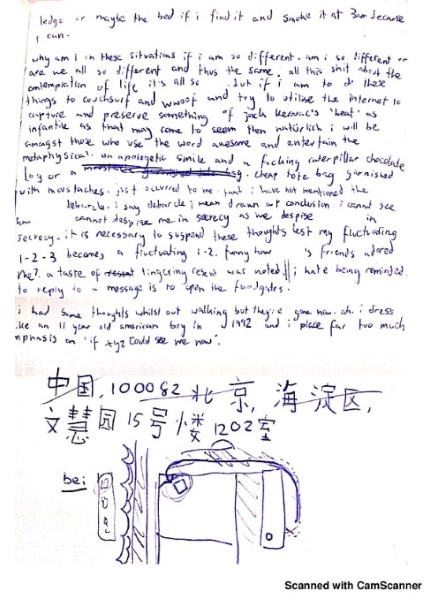 ledge or maybe the bed if i find it and smoke it at 3am because
i can.
why am i in these situations if i am so different. am i so different or
are we all so different and thus the same. all this shit about the
contemplation of life it's all so but if i am to do these
things to couchsurf and wwoof and try to utilise the internet to
capture and preserve something of jack kerouac's 'beat' as
infantile as that may come to seem then natürlich i will be
amongst those who use the word awesome and entertain the
metaphysical. un apologetic smile and a fucking caterpillar chocolate
log or a cheap tote bag garnished
with moustaches. just occurred to me i have not mentioned the
debacle. i say debacle i mean drawn out conclusion. i cannot see
how cannot despise me in secrecy as we despise in
secrecy. it is necessary to suspend these thoughts lest my fluctuating
1-2-3 becomes a fluctuating 1-2. funny how 's friends adored
me?. a taste of lingering resent was noted. i hate being reminded.
to reply to a message is to open the floodgates.
i had some thoughts whilst out walking but they're gone now. ah. i dress
like an 11 year old american boy in 1992 and i place far too much
emphasis on 'if xyz could see me now'.
中国, 100082 北京, 海淀区,
文慧园15号楼1202室
bei
Scanned with CamScanner